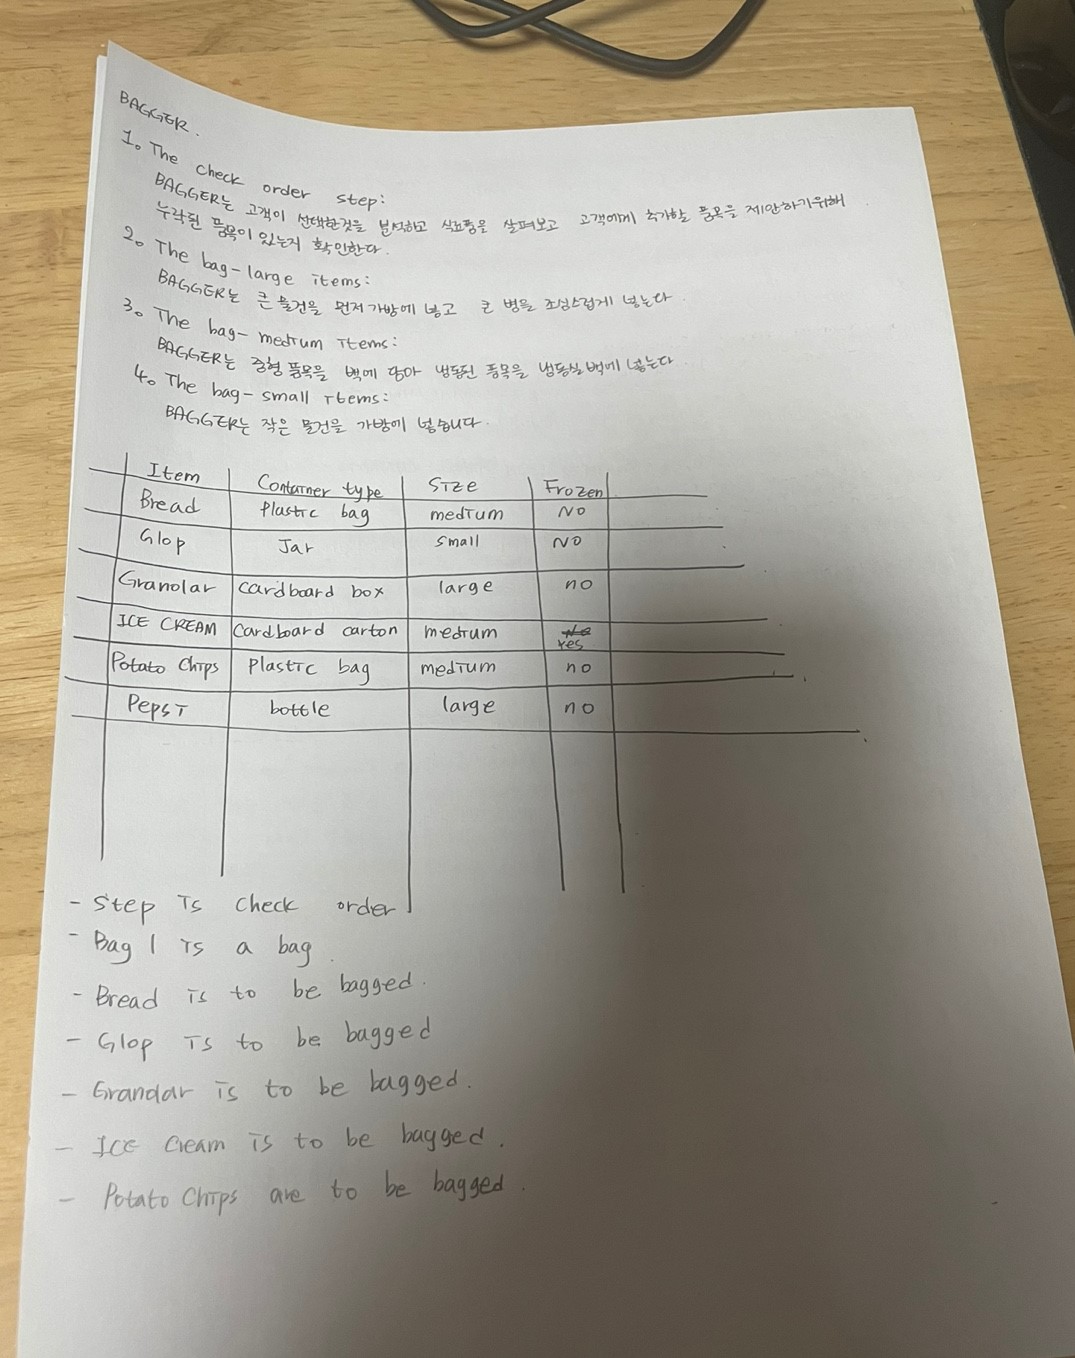 BAGGER.
1. The check order step:
BAGGER는 고객이 선택한것을 분석하고 식료품을 살펴보고 고객에게 추가할 품목을 제안하기위해
누락된 품목이 있는지 확인한다.
2. The bag-large items:
BAGGER는 큰 물건을 먼저 가방에 넣고 큰 병을 조심스럽게 넣는다.
3. The bag-medium items:
BAGGER는 중형 품목을 백에 담아 냉동된 품목을 냉동실백에 넣는다
4. The bag-small items:
BAGGER는 작은 물건을 가방에 넣습니다.
Item Container type Size Frozen
Bread Plastic bag medium NO
Glop Jar small NO
Granolar cardboard box large no
ICE CREAM Cardboard carton medium Yes
Potato Chips Plastic bag medium no
Pepsi bottle large no
- Step is check order
- Bag 1 is a bag.
- Bread is to be bagged.
- Glop is to be bagged
- Granolar is to be bagged.
- ICE Cream is to be bagged.
- Potato Chips are to be bagged.